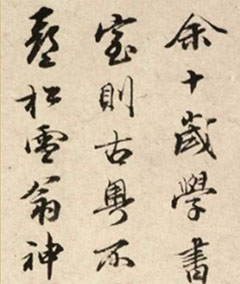 余十歲學書
室則古奧不
松雪翁神